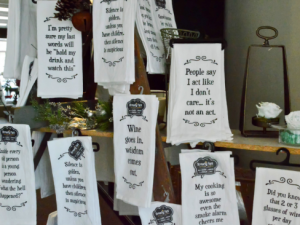 I'm pretty
sure my last
words will
be "hold my
drink and
watch this"
Silence is
golden,
unless you
have children,
then silence
is suspicious
People say
I act like
I don't
care... it's
not an act.
Wine
goes in,
wisdom
comes
out.
Silence is
golden,
unless you
have children,
then silence is
suspicious
My cooking
is so
awesome
even the
smoke alarm
cheers me
Did you know
that 2 or 3
glasses of wine
per day
Inside every
old person
is a young
person
wondering
what the hell
happened?